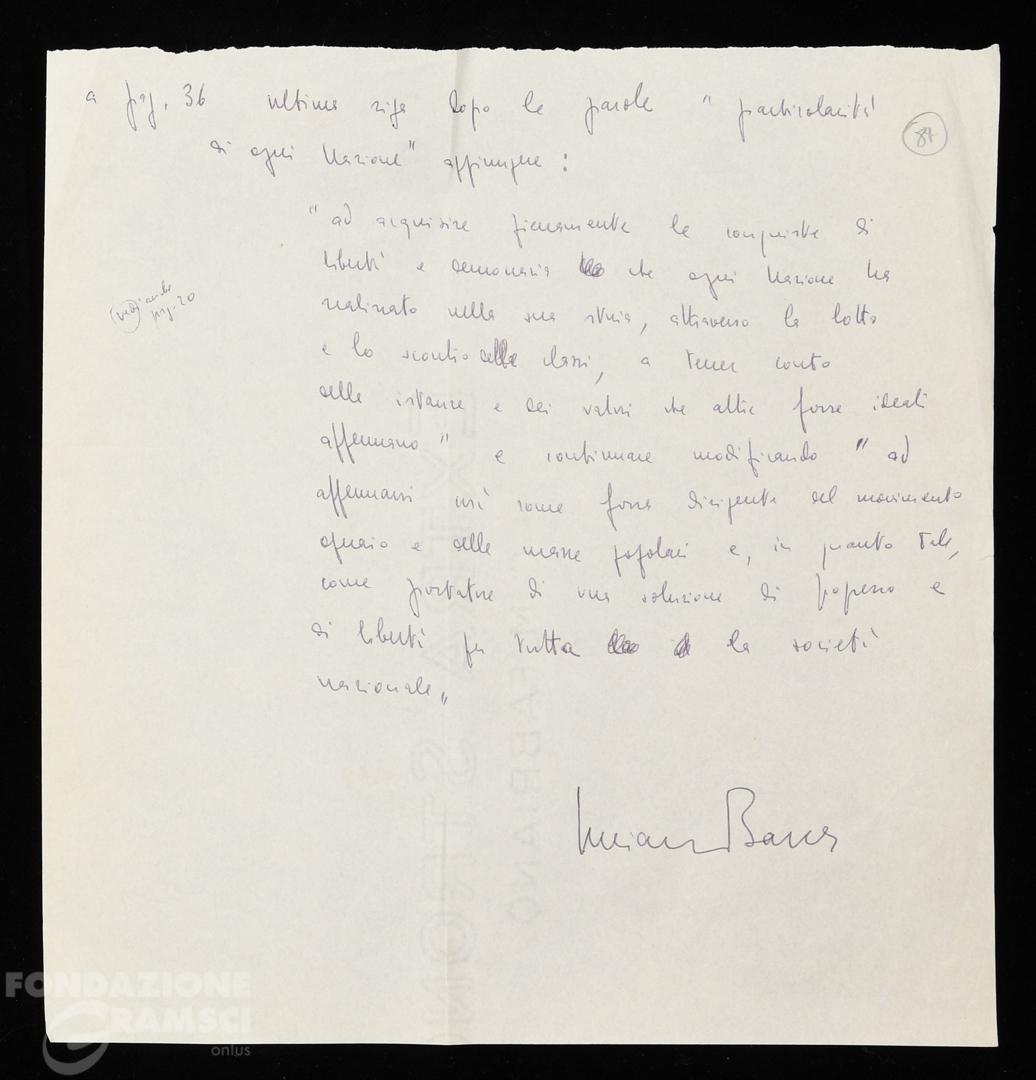 a pag. 36 ultima riga dopo le parole " particolarità
di ogni Nazione" aggiungere :
87
" ad acquisire pienamente le conquiste di
libertà e democrazia che ogni Nazione ha
realizzato nella sua storia, attraverso la lotta
e lo scontro delle classi, a tener conto
delle istanze e dei valori che altre forze ideali
affermano " e continuare modificando " ad
affermarsi così come forza dirigente del movimento
operaio e delle masse popolari e, in quanto tale,
come portatore di una soluzione di progresso e
di libertà per tutta la società
nazionale "
(vedi) anche
pag. 20
Luciano Barca
FONDAZIONE
GRAMSCI
onlus
FABRIANO